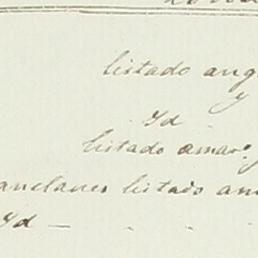 listado ang
y
Yd
listado amaro.
anclanes listado am
Yd —